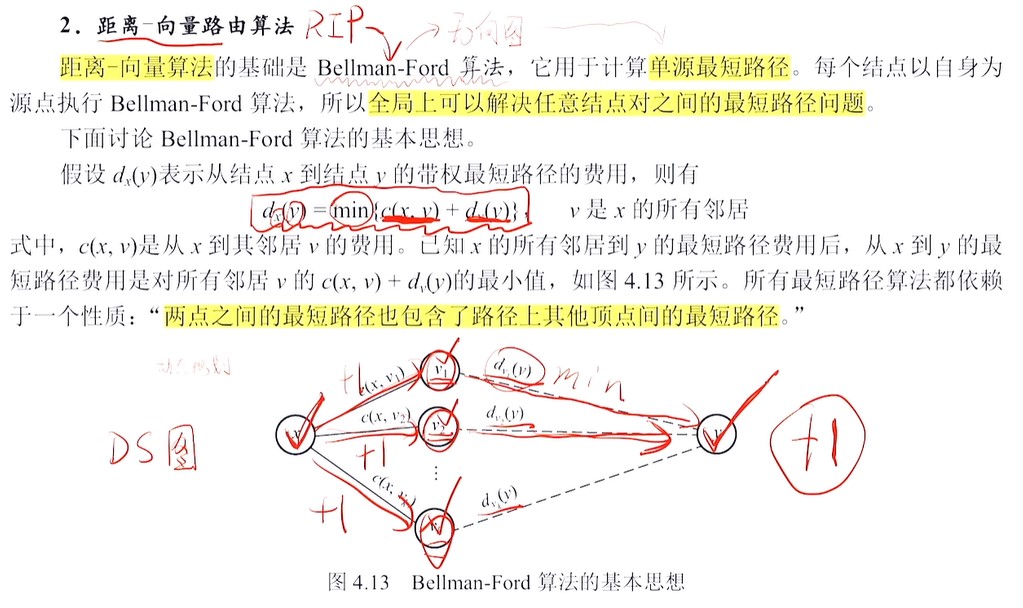 2．距离-向量路由算法 RIP 无向图
距离-向量算法的基础是 Bellman-Ford 算法，它用于计算单源最短路径。每个结点以自身为
源点执行 Bellman-Ford 算法，所以全局上可以解决任意结点对之间的最短路径问题。
下面讨论 Bellman-Ford 算法的基本思想。
假设 dx(y)表示从结点 x 到结点 y 的带权最短路径的费用，则有
dx(y) = min{c(x, v) + dv(y)}, v 是 x 的所有邻居
式中，c(x, v)是从 x 到其邻居 v 的费用。已知 x 的所有邻居到 y 的最短路径费用后，从 x 到 y 的最
短路径费用是对所有邻居 v 的 c(x, v) + dv(y)的最小值，如图 4.13 所示。所有最短路径算法都依赖
于一个性质：“两点之间的最短路径也包含了路径上其他顶点间的最短路径。”
动态规划
+1 c(x, v1) v1 dv1(y) min
DS图 c(x, v2) v2 dv2(y) y +1
+1
⋮
+1 dvk(y)
图 4.13 Bellman-Ford 算法的基本思想